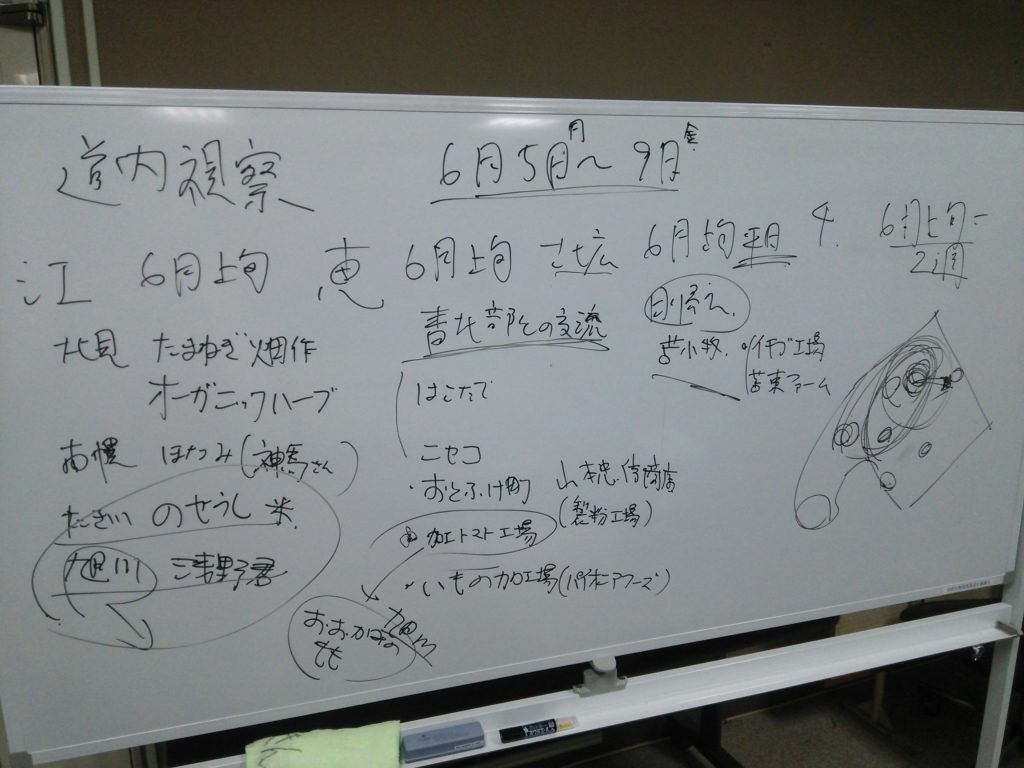 道内視察
6月5日(月)〜9日(金)
江 6月上旬
恵 6月上旬
北広 6月上旬平日
千 6月上旬〜2週
北見 たまねぎ畑作
オーガニックハーブ
南幌 ほなみ(神馬さん)
たきかわ のぞうし 米
旭川 浅野君
青北部との交流
はこだて
ニセコ
・おとふけ町 山本忠信商店
(製粉工場)
加工トマト工場
・いもの加工場
おおかばの
もも
旭川
日帰え
苫小牧 ・イチゴ工場
苫東ファーム